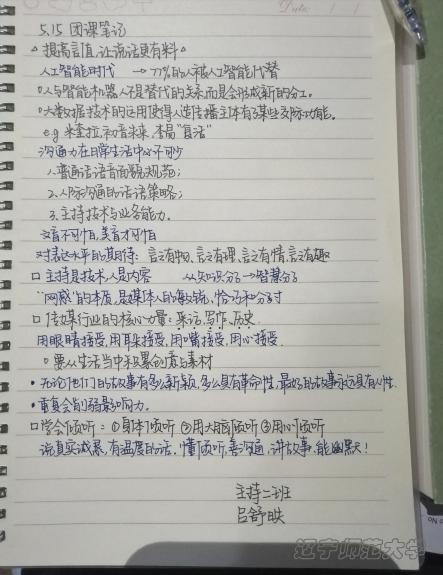 5.15 团课笔记
△提高言值,让说话更有料
人工智能时代 → 77%的人被人工智能代替
○人与智能机器人不是替代的关系而是会形成新的分工。
○大数据技术的运用使得人造传播主体有了某些交际功能。
e.g 米奎拉,初音未来,李昌"复活"
沟通力在日常生活中必不可少
1.普通话语音面貌规范;
2.人际沟通的话语策略;
3.主持技术与业务能力。
文盲不可怕,美盲才可怕
对表达水平的期待:言之有物,言之有理,言之有情,言之有趣
□主持是技术,人是内容 从知识分子→智慧分子
"网感"的本质,是媒体人的敏锐,恰巧和分寸
□传媒行业的核心力量:采访,写作,历史.
用眼睛接受,用耳朵接受,用嘴接受,用心接受.
○要从生活当中积累创意与素材
•无论他们的故事有多么新颖,多么具有革命性,最好的故事永远具有人性.
•重复会削弱影响力.
□学会倾听:①身体倾听 ②用大脑倾听 ③用心倾听
说真实诚恳,有温度的话.懂倾听,善沟通,讲故事,能幽默!
主持二班
吕舒映
辽宁师范大学